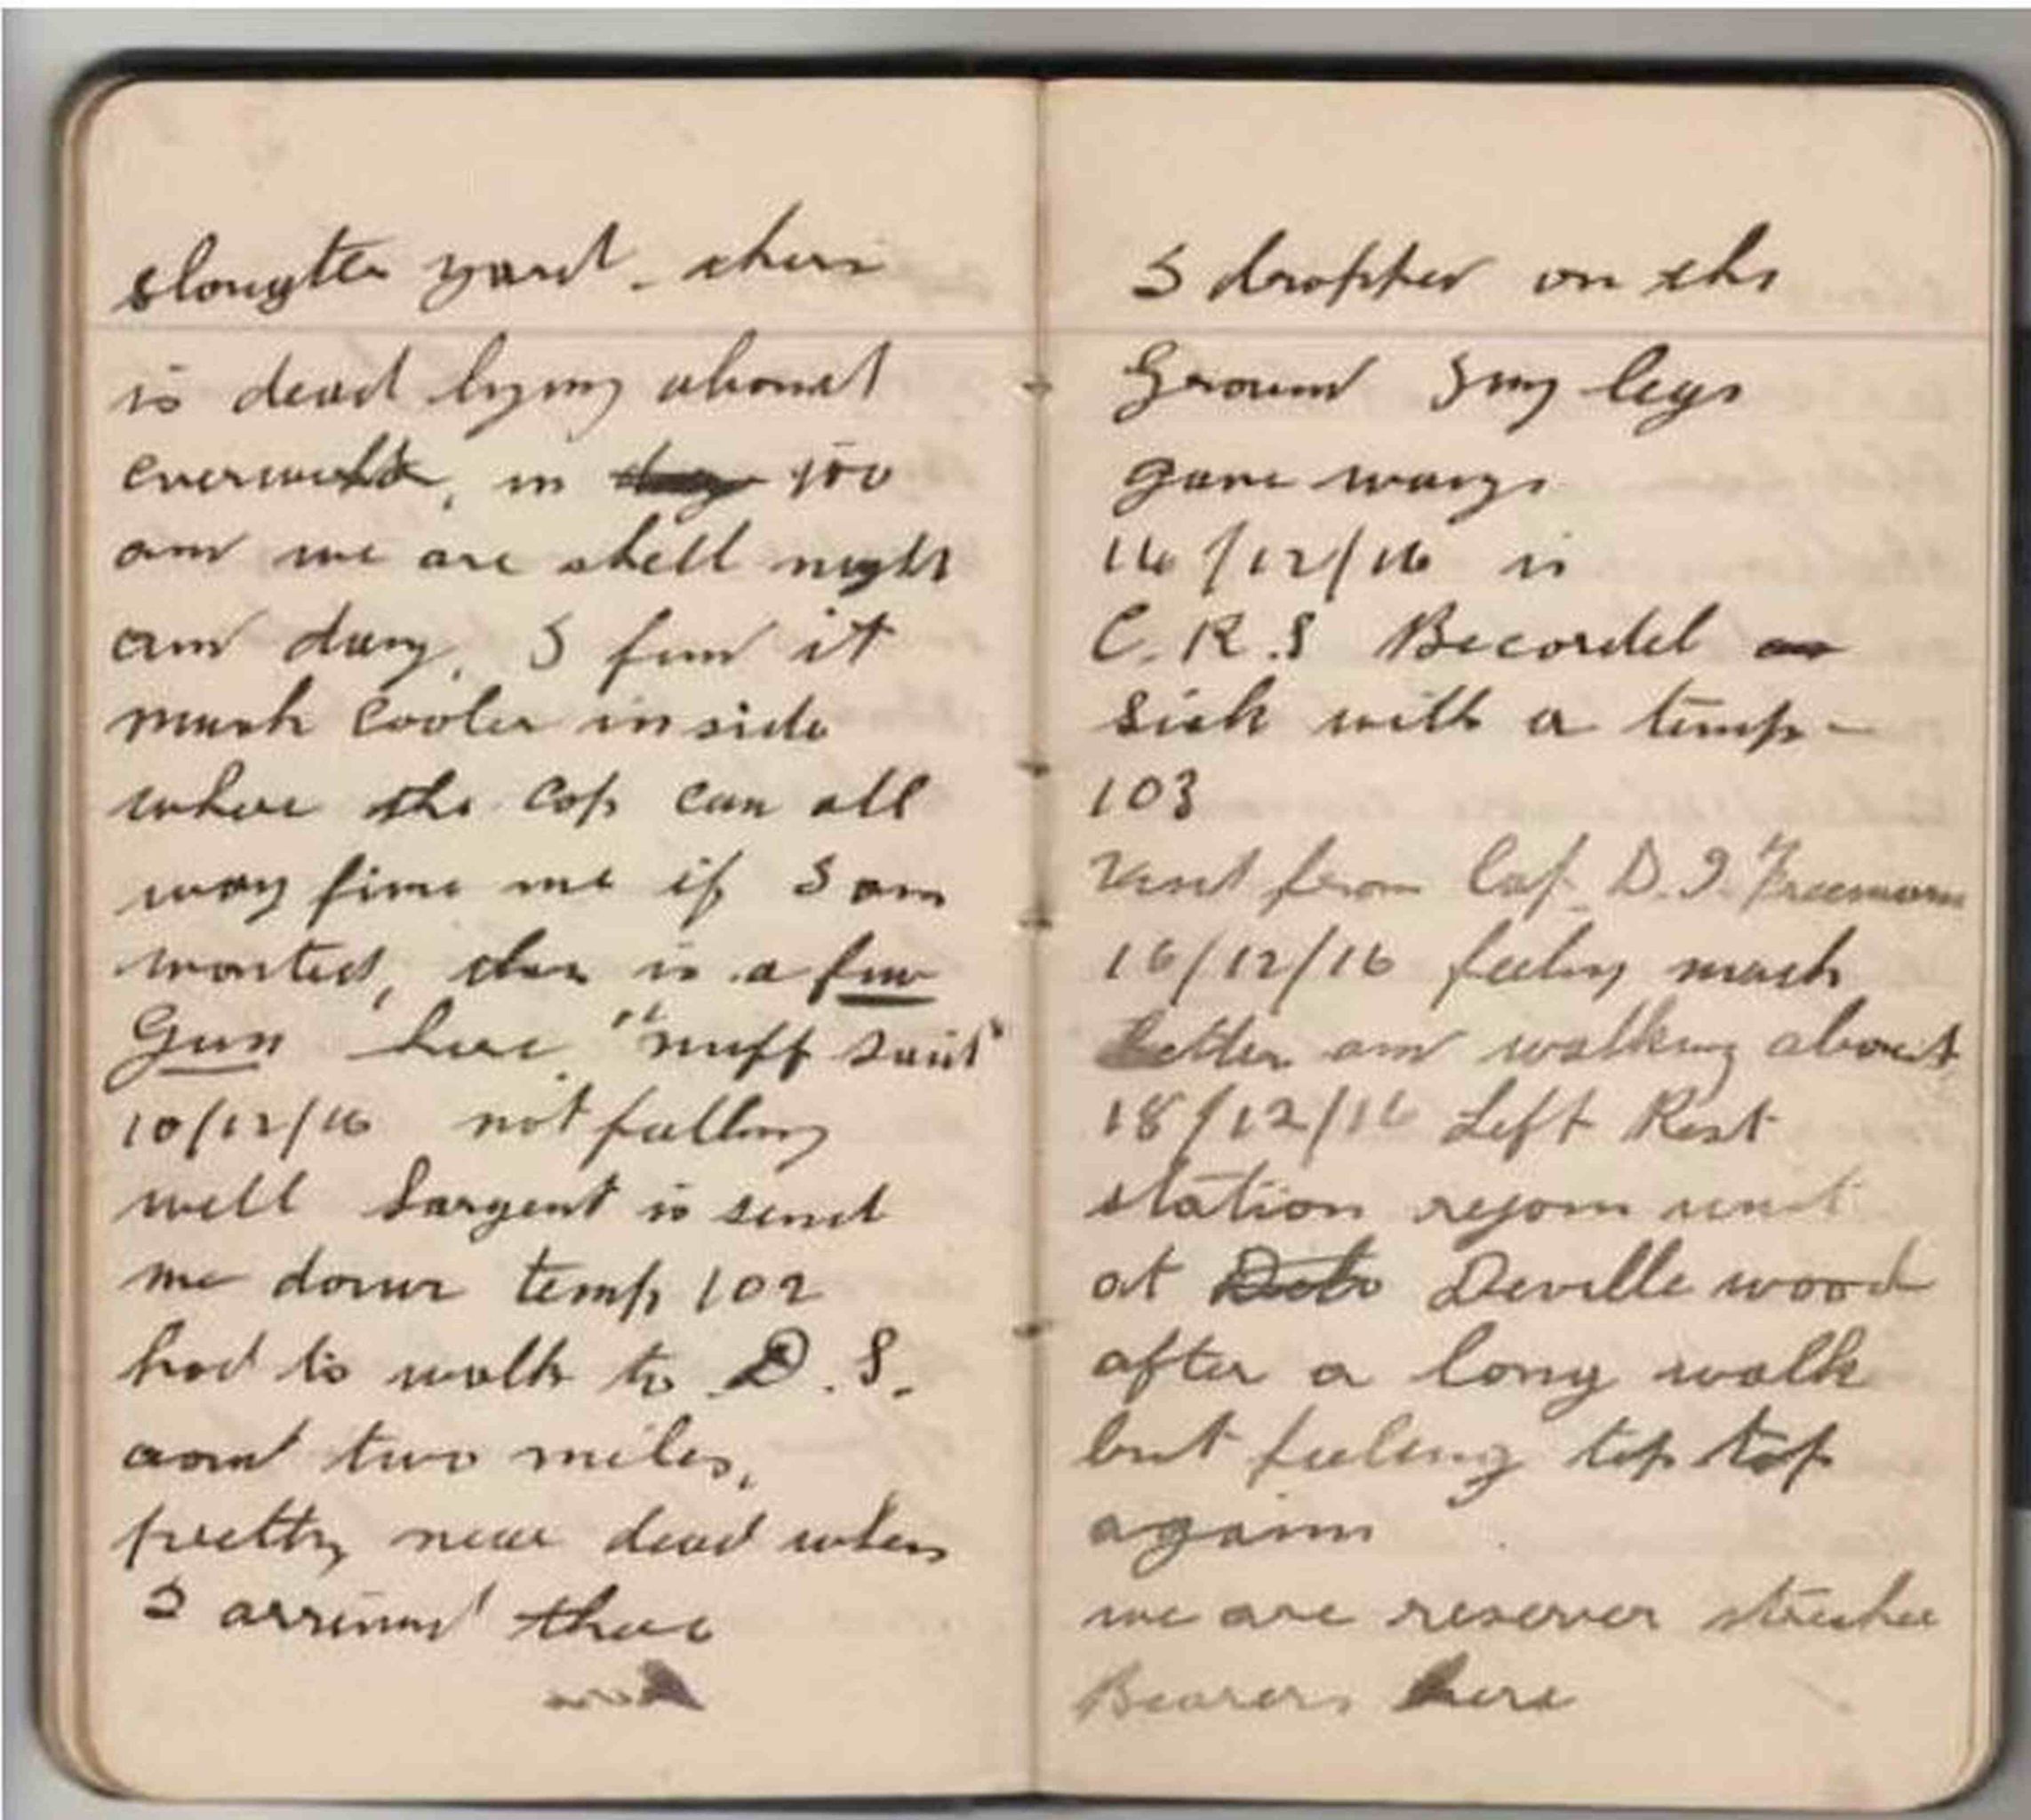 slougter yard. ther
is dead lying about
everwhere, in 100
and we are shell night
and day. I find it
much cooler inside
where the Cop can all
way fine me if I am
wanted, ther is a few
Gun here, "nuff said"
10/12/16 not falling
well Sargent is send
me down temp 102
had to walk to D.S.
aout two miles,
pretty near dead when
I arrived there
and
I dropped on the
Ground I my legs
gave way.
14/12/16 is
C.R.S Becordel
sick with a temp -
103
Visit from Cap D.I. Freeman
16/12/16 feeling much
better and walking about
18/12/16 Left Rest
station rejoin unit
at Deville wood
after a long walk
but feeling top top
again
we are reserver strecher
Bearers here